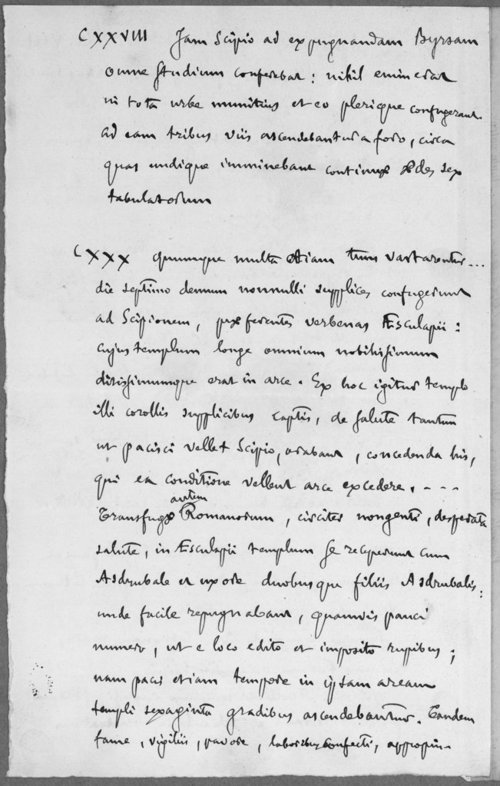 CXXVIII Jam Scipio ad expugnandam Byrsam
omne studium conferebat: nihil eminerat
in totâ urbe munitius et eo plerique confugerant.
ad eam tribus viis ascendebantur a foro, circa
quas undique imminebant continuæ ædes sex
tabulatorum
CXXX quumque multa etiam tum vastarentur...
die septimo demum nonnulli supplices confugerunt
ad Scipionem, præferentes verbenas Æsculapii:
cujus templum longe omnium nobilissimum
ditissimumque erat in arce. Ex hoc igitur templo
illi corollis supplicibus captis, de salute tantum
ut pacisci vellet Scipio, orabant, concedenda his,
qui ea conditione vellent arce excedere. - - -
autem
Transfugæ Romanorum, circiter nongenti, desperatâ
salute, in Æsculapii templum se receperunt cum
Asdrubale et uxore duobusque filiis Asdrubalis:
unde facile repugnabant, quamvis pauci
numero, ut e loco edito et imposito rupibus;
nam pacis etiam tempore in ipsam aream
templi sexaginta gradibus ascendebantur. Tandem
fame, vigiliis, pavore, laboribus confecti, appropin-